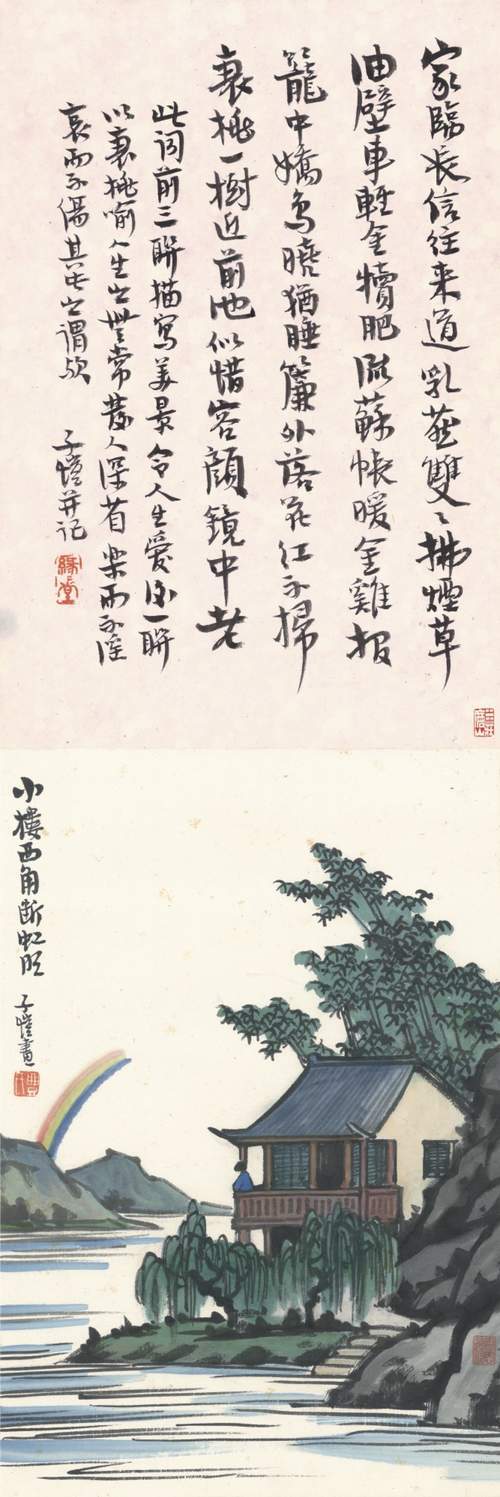 家臨長信往来道乳燕雙〻拂煙草
油壁車輕金犢肥流蘇帳暖金雞报
籠中嬌鳥曉猶睡簾外落花红不掃
衰桃一樹近前池似惜容顔鏡中老
此词前三聯描寫美景令人生爱後一聯
以衰桃喻人生之無常發人深省樂而不淫
哀而不傷其此之謂欤 子愷并记
緣堂
小樓西角断虹明 子愷畫